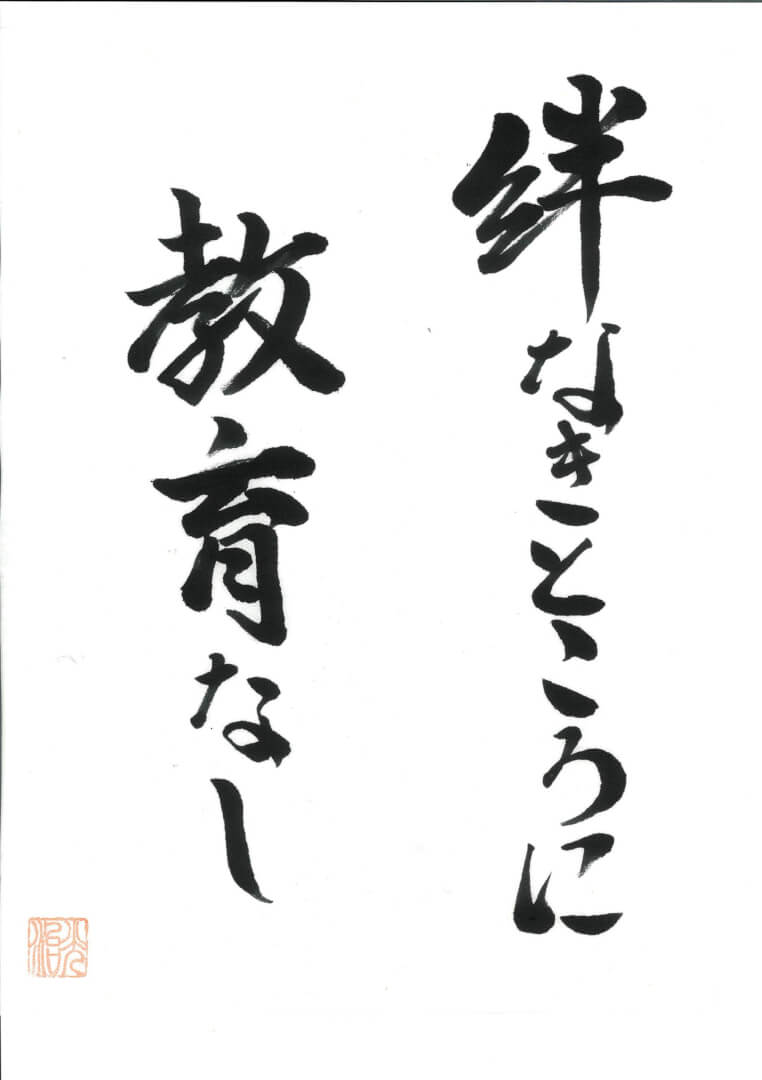 絆なきところに
教育なし